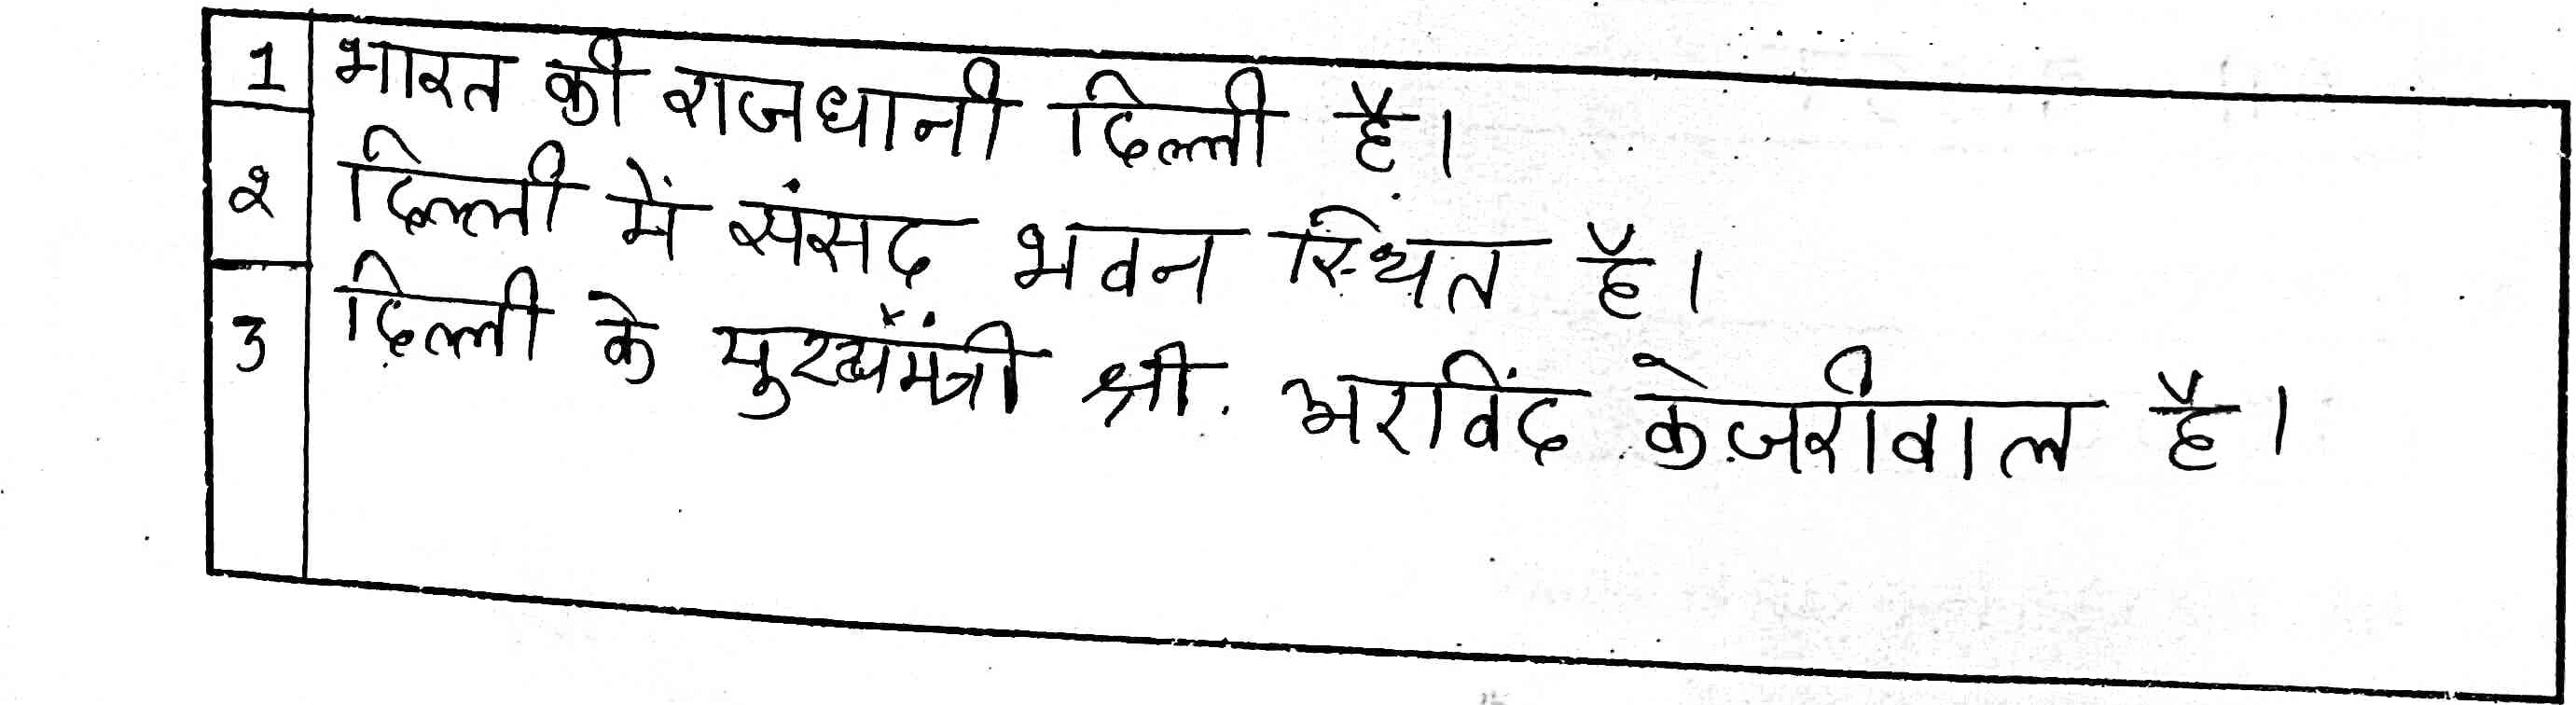 1 भारत की राजधानी दिल्ली है।
२ दिल्ली में संसद भवन स्थित है।
3 दिल्ली के मुख्यमंत्री श्री. अरविंद केजरीवाल है।